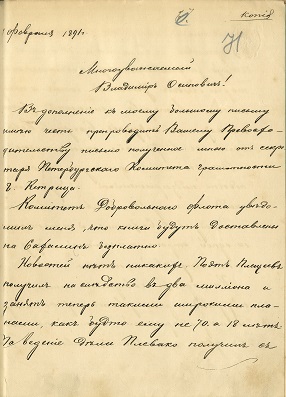 Копія
71
Февраля 1891.
Многоуважаемый
Владиміръ Осиповичъ!
Въ дополненіе къ моему большому письму
имѣю честь препроводить Вашему Превосхо-
дительству письмо полученное мною отъ секре-
таря Петербургскаго Комитета грамотности
Г. Кетрица.
Комитетъ Добровольнаго Флота увѣдо-
милъ меня, что книги будутъ доставлены
на Сахалинъ безплатно.
Новостей нѣтъ никакихъ. Поэтъ Плещеевъ
получилъ наслѣдство въ два милліона и
занятъ теперь такими широкими пла-
нами, какъ будто ему не 70, а 18 лѣтъ.
За веденіе дѣла Плевако получилъ съ